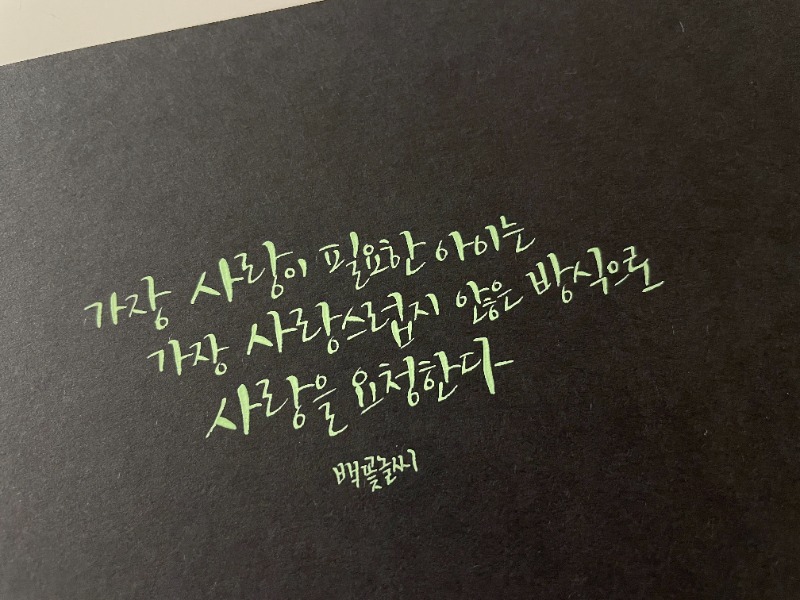 가장 사랑이 필요한 아이는
가장 사랑스럽지 않은 방식으로
사랑을 요청한다